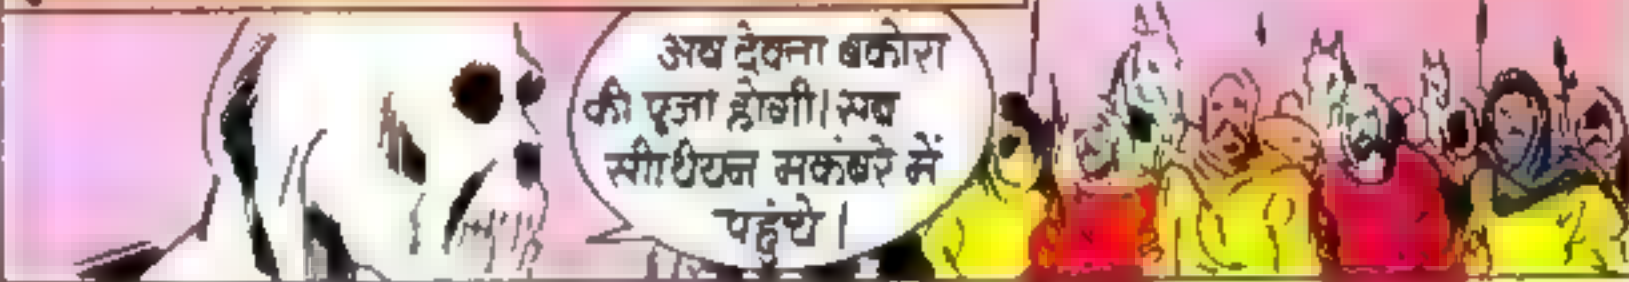 अब देवता बकोरा
की पूजा होगी। सब
सीथियन मकबरे में
पहुंचे।